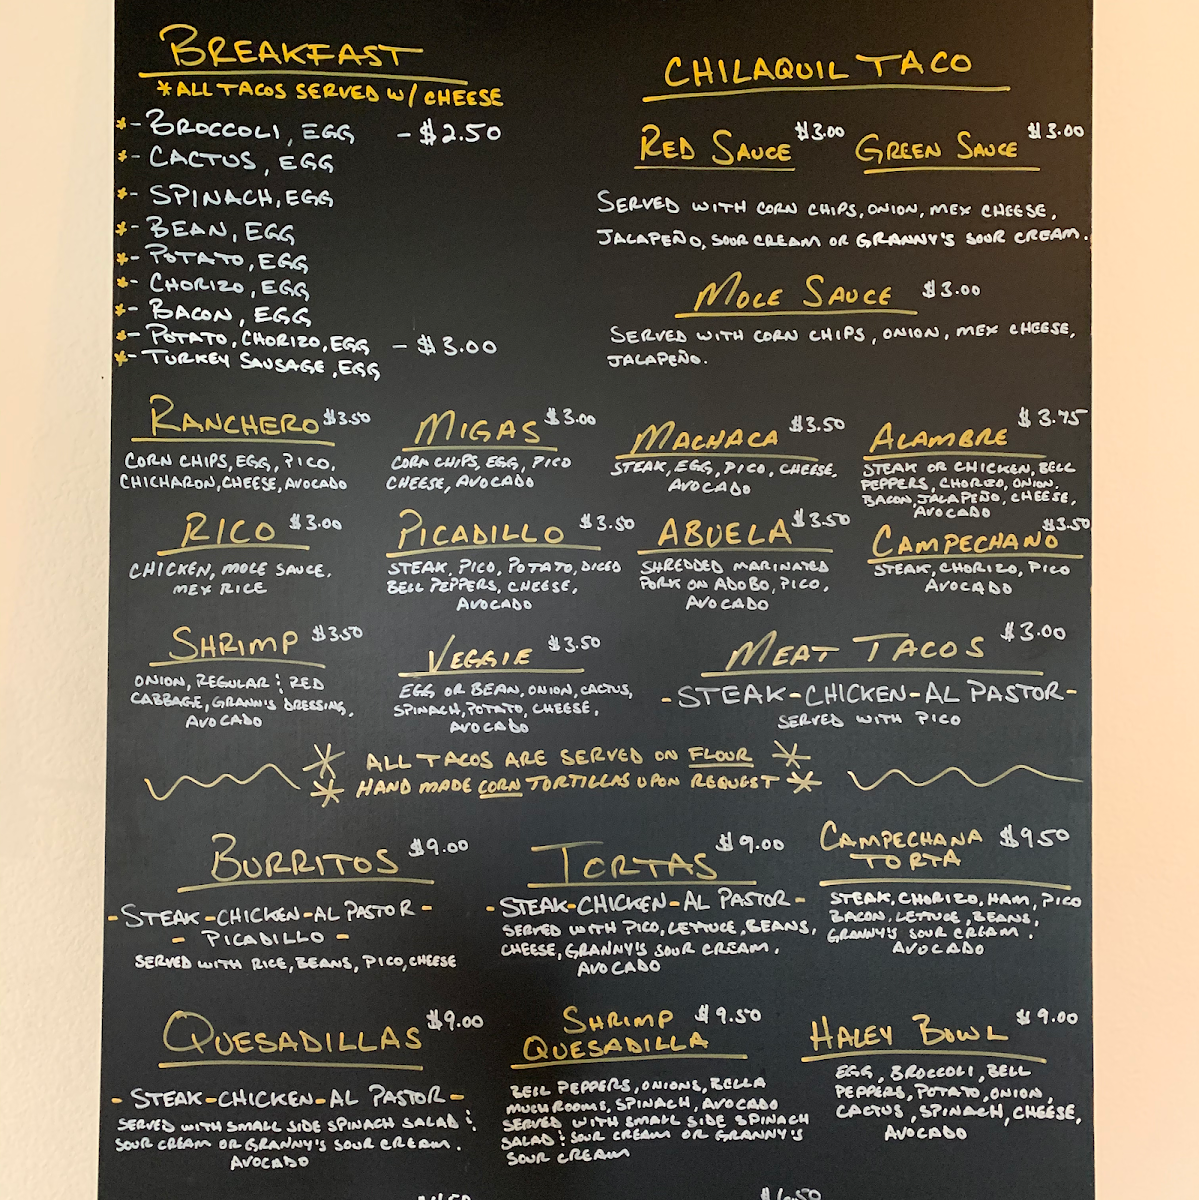 BREAKFAST
*ALL TACOS SERVED W/ CHEESE
*- BROCCOLI, EGG - $2.50
*- CACTUS, EGG
*- SPINACH, EGG
*- BEAN, EGG
*- POTATO, EGG
*- CHORIZO, EGG
*- BACON, EGG
*- POTATO, CHORIZO, EGG - $3.00
*- TURKEY SAUSAGE, EGG
CHILAQUIL TACO
RED SAUCE $3.00 GREEN SAUCE $3.00
SERVED WITH CORN CHIPS, ONION, MEX CHEESE,
JALAPEÑO, SOUR CREAM OR GRANNY'S SOUR CREAM.
MOLE SAUCE $3.00
SERVED WITH CORN CHIPS, ONION, MEX CHEESE,
JALAPEÑO.
RANCHERO $3.50
CORN CHIPS, EGG, PICO,
CHICHARON, CHEESE, AVOCADO
MIGAS $3.00
CORN CHIPS, EGG, PICO
CHEESE, AVOCADO
MACHACA $3.50
STEAK, EGG, PICO, CHEESE,
AVOCADO
ALAMBRE $3.75
STEAK OR CHICKEN, BELL
PEPPERS, CHORIZO, ONION,
BACON, JALAPEÑO, CHEESE,
AVOCADO
RICO $3.00
CHICKEN, MOLE SAUCE,
MEX RICE
PICADILLO $3.50
STEAK, PICO, POTATO, DICED
BELL PEPPERS, CHEESE,
AVOCADO
ABUELA $3.50
SHREDDED MARINATED
PORK ON ADOBO, PICO,
AVOCADO
CAMPECHANO $3.50
STEAK, CHORIZO, PICO
AVOCADO
SHRIMP $3.50
ONION, REGULAR & RED
CABBAGE, GRANN'S DRESSING,
AVOCADO
VEGGIE $3.50
EGG OR BEAN, ONION, CACTUS,
SPINACH, POTATO, CHEESE,
AVOCADO
MEAT TACOS $3.00
-STEAK-CHICKEN-AL PASTOR-
SERVED WITH PICO
* ALL TACOS ARE SERVED ON FLOUR *
* HAND MADE CORN TORTILLAS UPON REQUEST *
BURRITOS $9.00
-STEAK-CHICKEN-AL PASTOR-
- PICADILLO -
SERVED WITH RICE, BEANS, PICO, CHEESE
TORTAS $9.00
-STEAK-CHICKEN-AL PASTOR-
SERVED WITH PICO, LETTUCE, BEANS,
CHEESE, GRANNY'S SOUR CREAM,
AVOCADO
CAMPECHANA $9.50
TORTA
STEAK, CHORIZO, HAM, PICO
BACON, LETTUCE, BEANS,
GRANNY'S SOUR CREAM,
AVOCADO
QUESADILLAS $9.00
-STEAK-CHICKEN-AL PASTOR-
SERVED WITH SMALL SIDE SPINACH SALAD &
SOUR CREAM OR GRANNY'S SOUR CREAM.
AVOCADO
SHRIMP $9.50
QUESADILLA
BELL PEPPERS, ONIONS, BELLA
MUSHROOMS, SPINACH, AVOCADO
SERVED WITH SMALL SIDE SPINACH
SALAD & SOUR CREAM OR GRANNY'S
SOUR CREAM
HALEY BOWL $9.00
EGG, BROCCOLI, BELL
PEPPERS, POTATO, ONION,
CACTUS, SPINACH, CHEESE,
AVOCADO